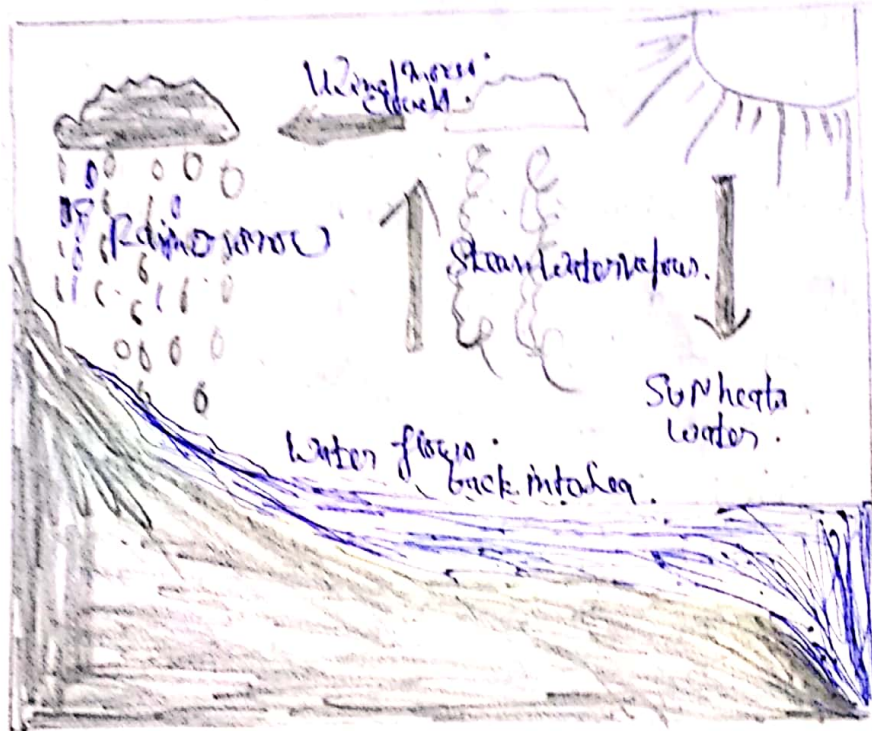 Wind moves
clouds.
Rain or snow
Steam/water vapour.
Sun heats
water.
Water flows
back into sea.